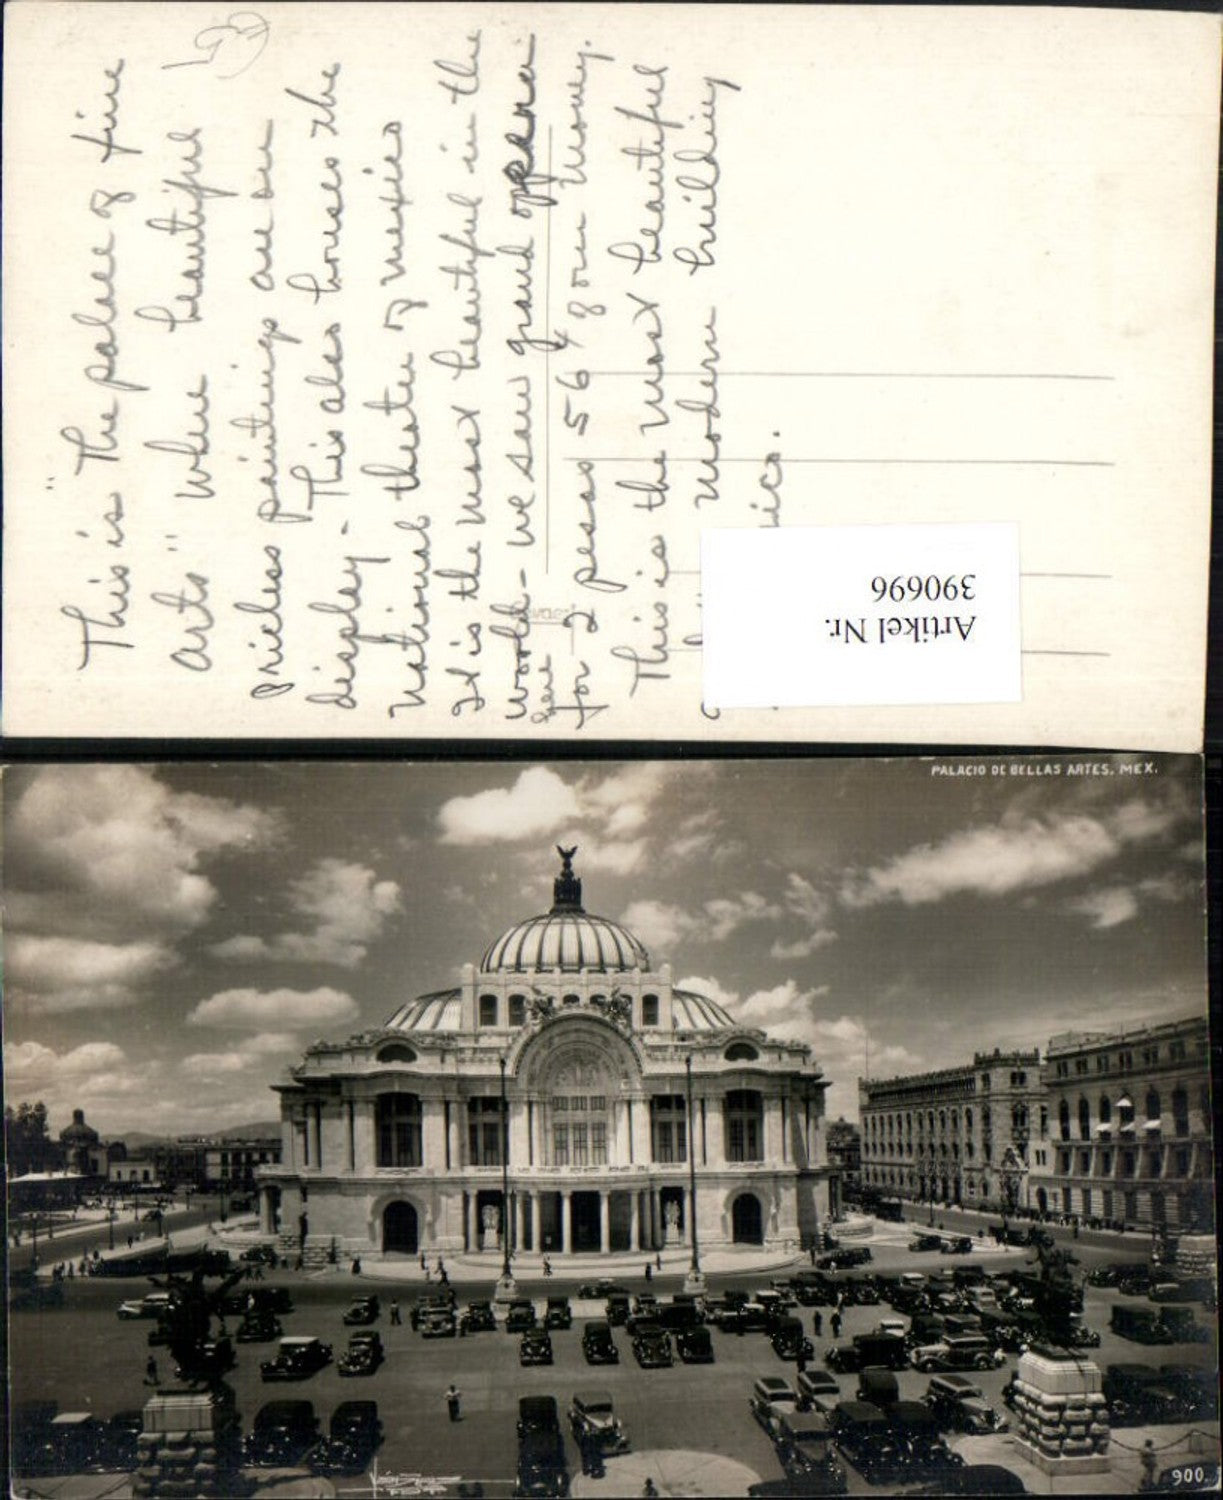 This is "The palace of fine
arts" where beautiful
priceless paintings are on
display - This also houses the
National theater of mexico
It is the most beautiful in the
world - we saw grand opera
here
for 2 pesos 56¢ of our money.
This is the most beautiful
modern building
Artikel Nr.
390696
PALACIO DE BELLAS ARTES. MEX.
900